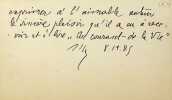 exprimer à l'aimable auteur
le sincère plaisir qu'il a eu à rece-
voir et à lire "Au courant de la Vie"
8.19.85